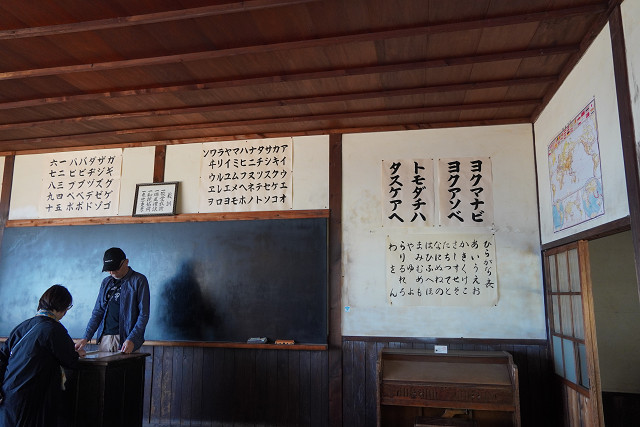 アイウエオ
カキクケコ
サシスセソ
タチツテト
ナニヌネノ
ハヒフヘホ
マミムメモ
ヤイユエヨ
ラリルレロ
ワヰウヱヲ
ン
ガギグゲゴ
ザジズゼゾ
ダヂヅデド
バビブベボ
パピプペポ
一二三四五
六七八九十
ヨクマナビ
ヨクアソベ
トモダチハ
タスケアヘ
ひらがな表
あいうえお
かきくけこ
さしすせそ
たちつてと
なにぬねの
はひふへほ
まみむめも
やゆよ
らりるれろ
わをん